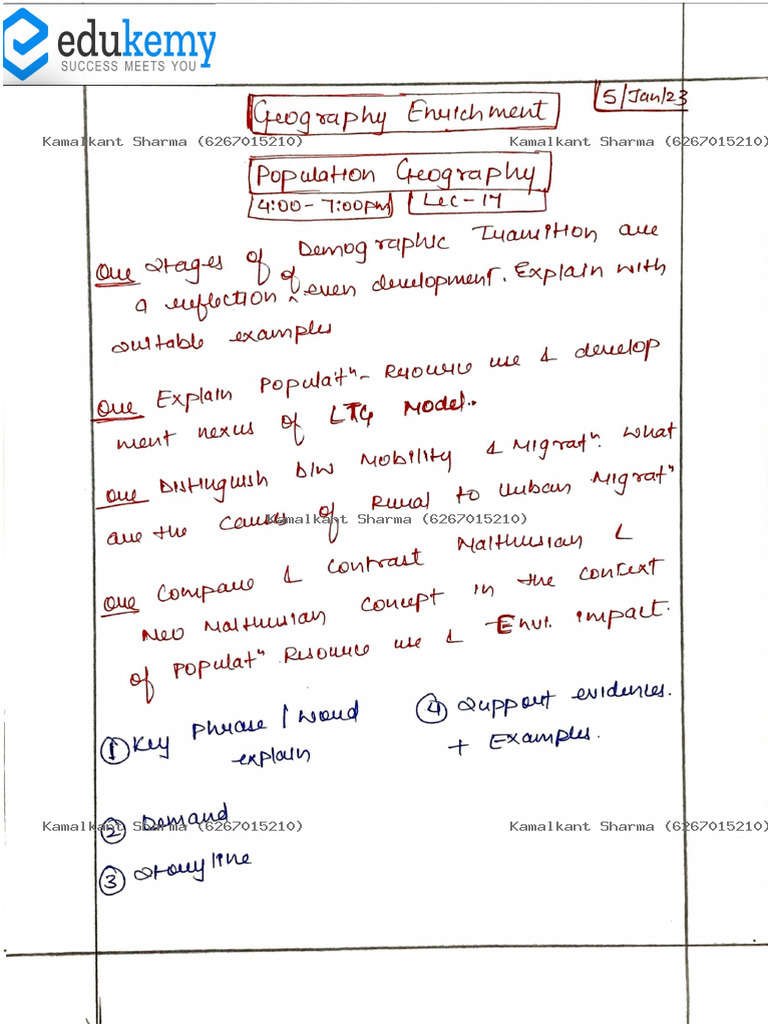 edukemy
SUCCESS MEETS YOU
5/Jan/23
Geography Enrichment
Kamalkant Sharma (6267015210) Kamalkant Sharma (6267015210)
Population Geography
4:00-7:00pm Lec-17
Que Stages of Demographic Transition are
a reflection of even development. Explain with
suitable examples
Que Explain Populatⁿ- Resource use & develop
ment nexus of LTG Model.
Que Distinguish b/w Mobility & Migratⁿ. What
are the causes of Rural to Urban Migratⁿ
Kamalkant Sharma (6267015210)
Que Compare & Contrast Malthusian &
Neo Malthusian concept in the context
of Populatⁿ Resource use & Envi. impact.
① Key Phrase / word
explain
④ Support evidences.
+ Examples.
② Demand
Kamalkant Sharma (6267015210) Kamalkant Sharma (6267015210)
③ Story line